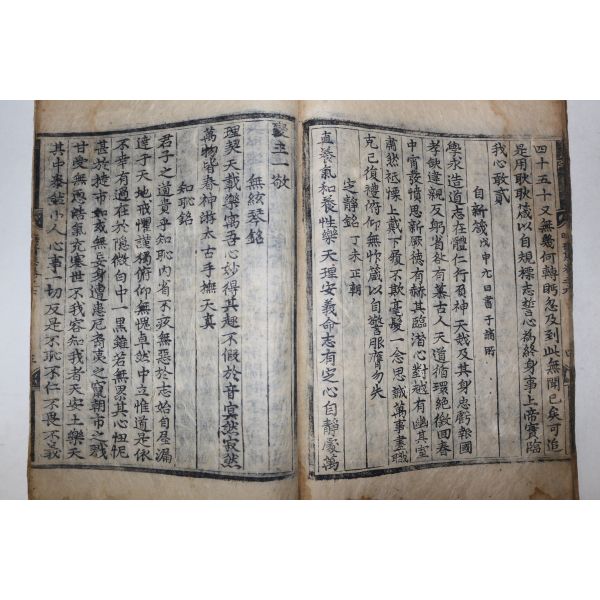 四十五十又無幾何轉眄忽及到此無聞已矣可追
是用耿耿歲以自規標志誓心爲終身事上帝實臨
我心敢貳
自新箴 戊申九日書于謫所
學求造道志在體仁行負神天哉及其身忠虧報國
孝缺違親反躬省愆有慕古人天道循環絶微回春
中宵發憤思新厥德有赫其臨潛心對越有幽其室
肅然祗慄上戴下履不欺毫髮一念思誠萬事畢職
克己復禮俯仰無怍箴以自警服膺勿失
定靜銘 丁未正朝
直養氣和養性樂天理安義命志有定心自靜處萬
變主一敬
無絃琴銘
理契天載樂寓吾心妙得其趣不假於音寞然寂然
萬物皆春神游太古手撫天真
知恥銘
君子之道貴乎知恥内省不疚無惡於志始自屋漏
達乎天地戒懼謹獨俯仰無愧卓然中立惟道是依
不幸有過在於隱微白中一黑雖若無累其心忸怩
甚於撻市如或無妄身遭患尼齊衷之竄朝市之戮
甘受無愚皓氣充塞世不我容知我者天安土樂天
其中泰然小人心事一切反是不恥不仁不畏不義